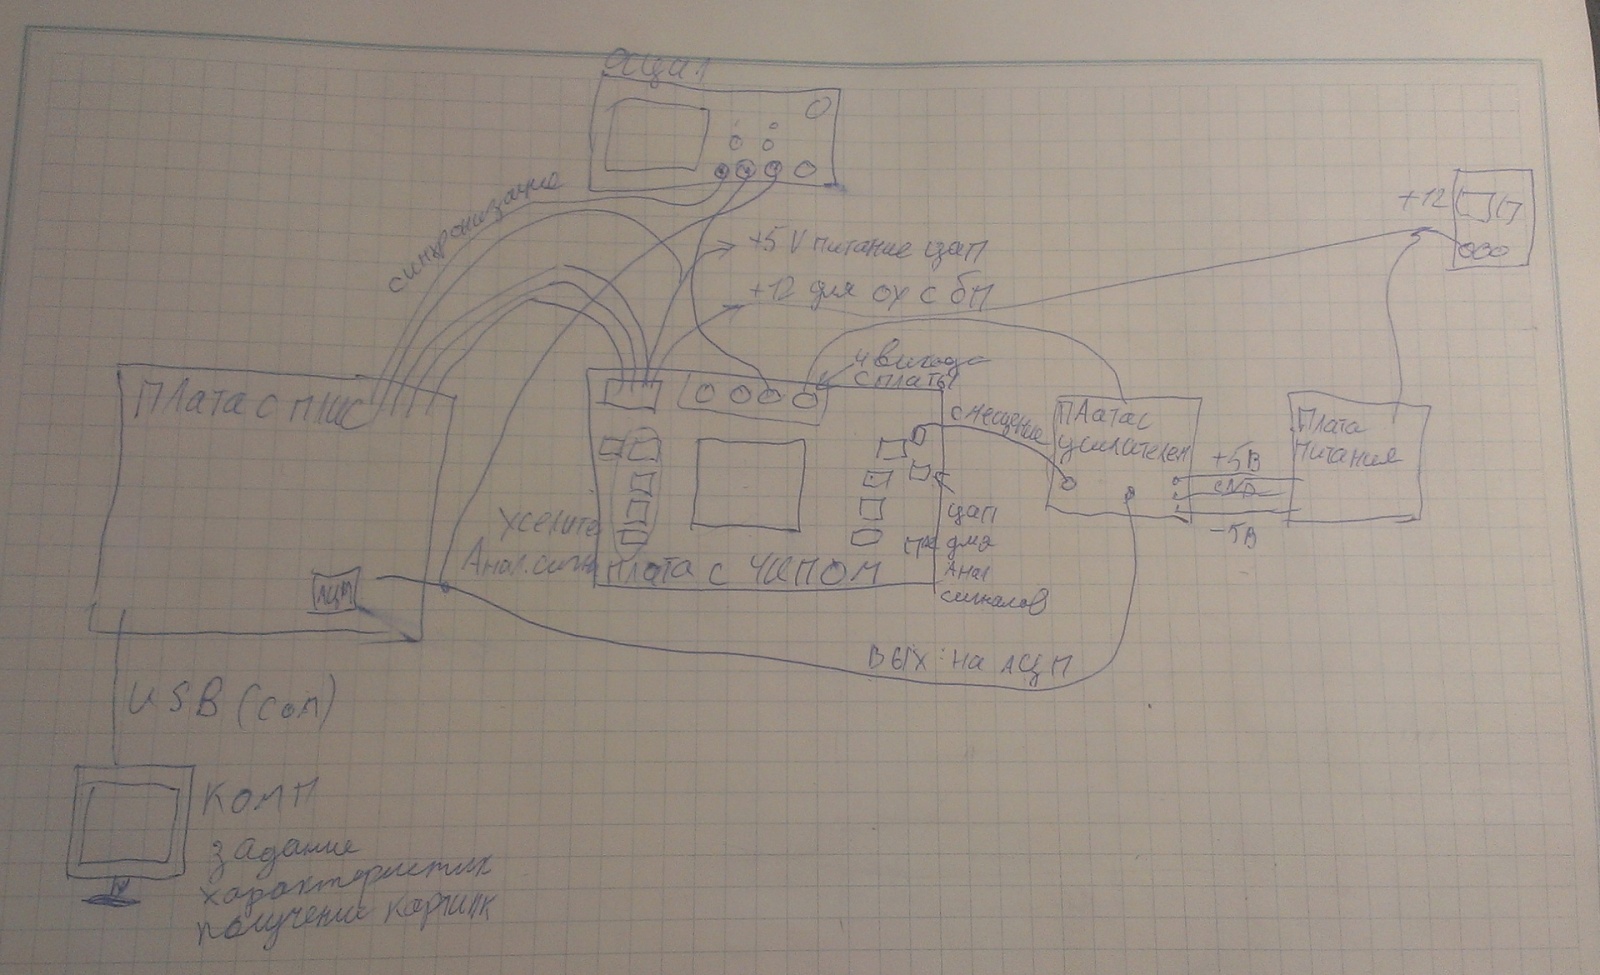 Осцил
синхронизация
+5 V питание ЦАП
+12 для ОУ с БП
+12
4 выхода
с платы
Плата с ПЛИС
смещение
Плата с
усилителем
+5В
GND
-5В
Плата
питания
Анал. сигн
Плата с чипом
ЦАП
для
Анал
сигналов
АЦП
Вых на АЦП
USB (com)
Комп
задание
характеристик
получение картинк